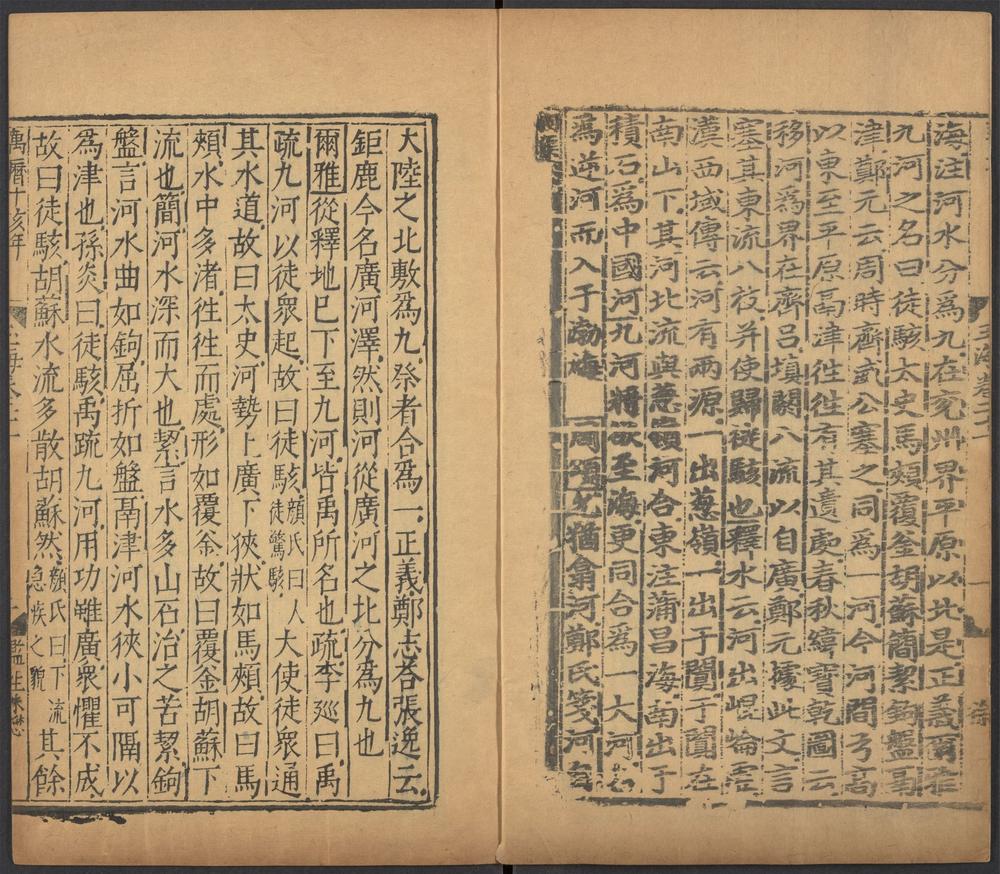 海注河水分爲九在兖州界平原以北是正義爾雅
九河之名曰徒駭太史馬頰覆釜胡蘇簡絜鉤盤鬲
津鄭元云周時齊威公塞之同爲一河今河間弓高
以東至平原鬲津徃徃有其遺處春秋緯寶乾圖云
移河爲界在齊呂填閼八流以自廣鄭元據此文言
塞其東流八枝并使歸從駭也釋水云河出崐崙虛
漢西域傳云河有兩源一出葱嶺一出于闐于闐在
南山下其河北流與葱嶺河合東注蒲昌海南出于
積石爲中國河九河將欲至海更同合爲一大河名
爲逆河而入于渤海 周頌允猶翕河鄭氏箋河自
玉海卷二十一
大陸之北敷爲九祭者合爲一正義鄭志荅張逸云
鉅鹿今名廣河澤然則河從廣河之北分爲九也
爾雅從釋地巳下至九河皆禹所名也疏李廵曰禹
疏九河以徒衆起故曰徒駭顏氏曰人徒驚駭大使徒衆通
其水道故曰太史河勢上廣下狹狀如馬頰故曰馬
頰水中多渚徃徃而處形如覆釜故曰覆釜胡蘇下
流也簡河水深而大也絜言水多山石治之苦絜鉤
盤言河水曲如鉤屈折如盤鬲津河水狹小可隔以
爲津也孫炎曰徒駭禹疏九河用功雖廣衆懼不成
故曰徒駭胡蘇水流多散胡蘇然顏氏曰下流急疾之貌其餘
萬曆十 年